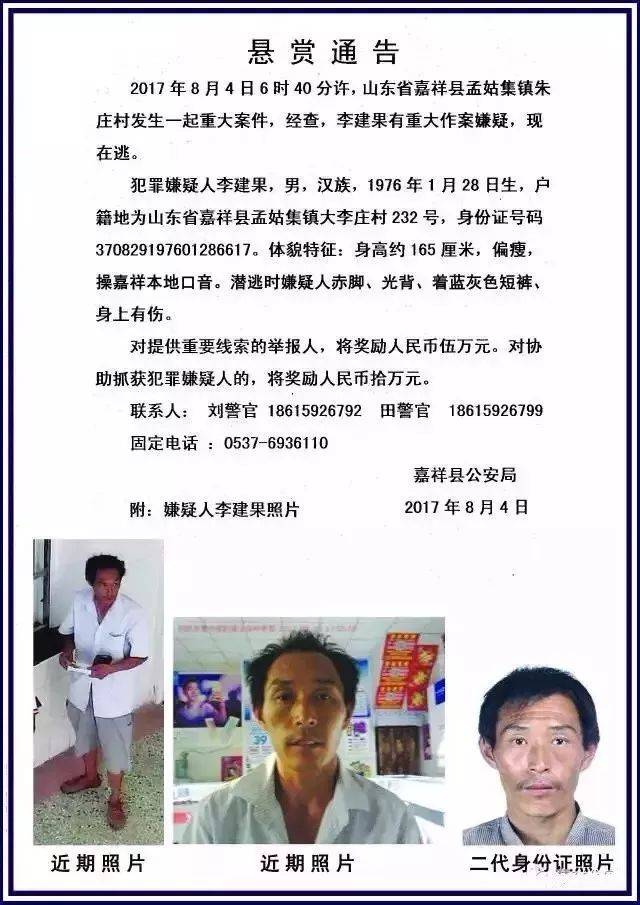 悬赏通告
2017年8月4日6时40分许，山东省嘉祥县孟姑集镇朱
庄村发生一起重大案件，经查，李建果有重大作案嫌疑，现
在逃。
犯罪嫌疑人李建果，男，汉族，1976年1月28日生，户
籍地为山东省嘉祥县孟姑集镇大李庄村232号，身份证号码
370829197601286617。体貌特征：身高约165厘米，偏瘦，
操嘉祥本地口音。潜逃时嫌疑人赤脚、光背、着蓝灰色短裤、
身上有伤。
对提供重要线索的举报人，将奖励人民币伍万元。对协
助抓获犯罪嫌疑人的，将奖励人民币拾万元。
联系人： 刘警官 18615926792 田警官 18615926799
固定电话 ：0537-6936110
嘉祥县公安局
附：嫌疑人李建果照片
2017年8月4日
39
近期照片
近期照片
二代身份证照片